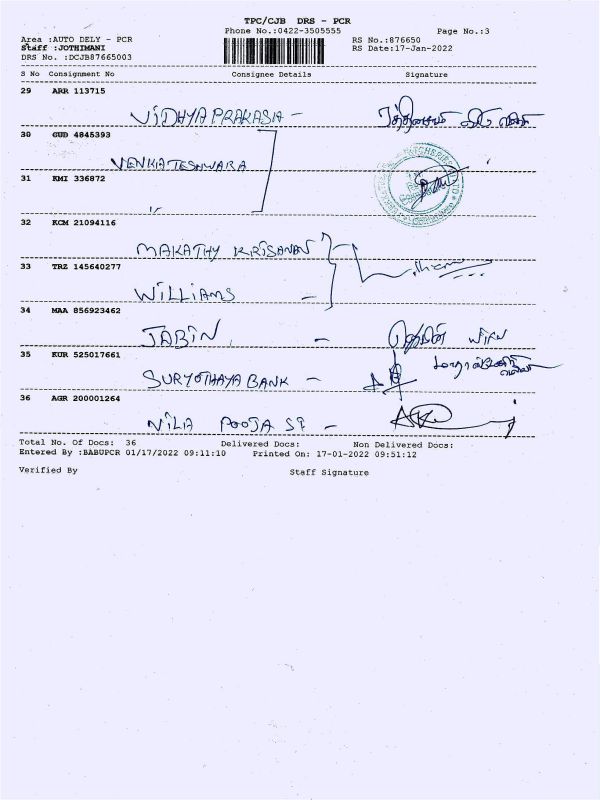 TPC/CJB DRS - PCR
Phone No.:0422-3505555 Page No.:3
Area :AUTO DELY - PCR RS No.:876650
Staff :JOTHIMANI RS Date:17-Jan-2022
DRS No. :DCJB87665003
S No Consignment No Consignee Details Signature
29 ARR 113715
VIDHYA PRAKASIA -
30 GUD 4845393
VENKATESHWARA
31 KMI 336872
32 KCM 21094116
MAKATHY KRISANAN
33 TRZ 145640277
WILLIAMS -
34 MAA 856923462
JABIN. -
35 KUR 525017661
SURYOTHAYA BANK -
36 AGR 200001264
NILA POOJA ST -
Total No. Of Docs: 36 Delivered Docs: Non Delivered Docs:
Entered By :BABUPCR 01/17/2022 09:11:10 Printed On: 17-01-2022 09:51:12
Verified By Staff Signature